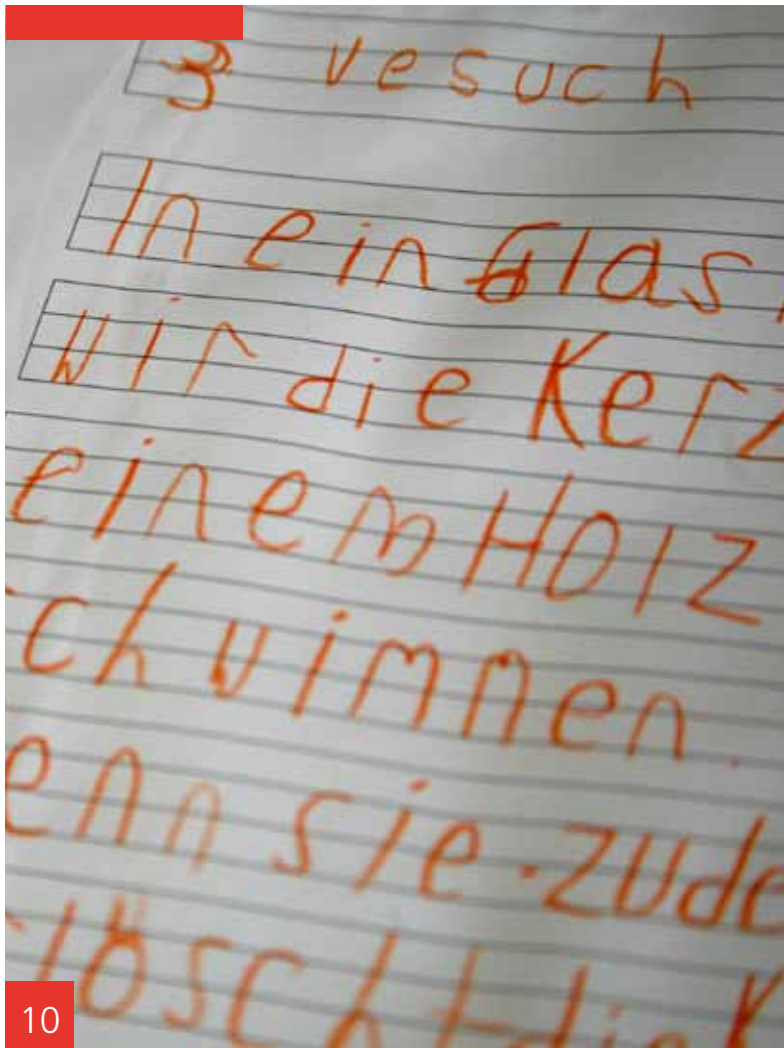 3 vesuch
In ein Glas
wir die Kerz
einem Holz
chwimmen.
enn sie zude
löscht die K
10